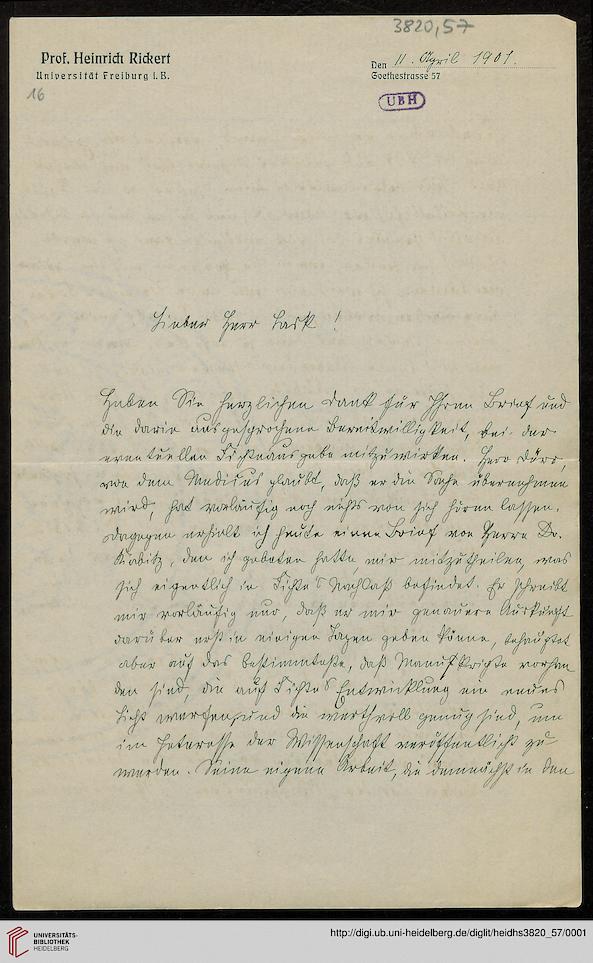 3820,57
Prof. Heinrich Rickert
Universität Freiburg i. B.
Den 11. April 1901.
Goethestrasse 57
16
UBH
Lieber Herr Lask!
Haben Sie herzlichen Dank für Ihren Brief und
die darin ausgesprochene Bereitwilligkeit, bei der
eventuellen Fichteausgabe mitzuwirken. Herr Dürr,
von dem Medicus glaubt, daß er die Sache übernehmen
wird, hat vorläufig noch nichts von sich hören lassen.
Dagegen erhielt ich heute einen Brief von Herrn Dr.
Kabitz, den ich gebeten hatte, mir mitzutheilen, was
sich eigentlich in Fichtes Nachlaß befindet. Er schreibt
mir vorläufig nur, daß er mir genauere Auskunft
darüber erst in einigen Tagen geben könne, behauptet
aber auf das bestimmteste, daß Manuskripte vorhan
den sind, die auf Fichtes Entwicklung ein neues
Licht werfen, und die werthvoll genug sind, um
im Interesse der Wissenschaft veröffentlicht zu
werden. Seine eigene Arbeit, die demnächst in den
UNIVERSITÄTS-
BIBLIOTHEK
HEIDELBERG
http://digi.ub.uni-heidelberg.de/diglit/heidhs3820_57/0001